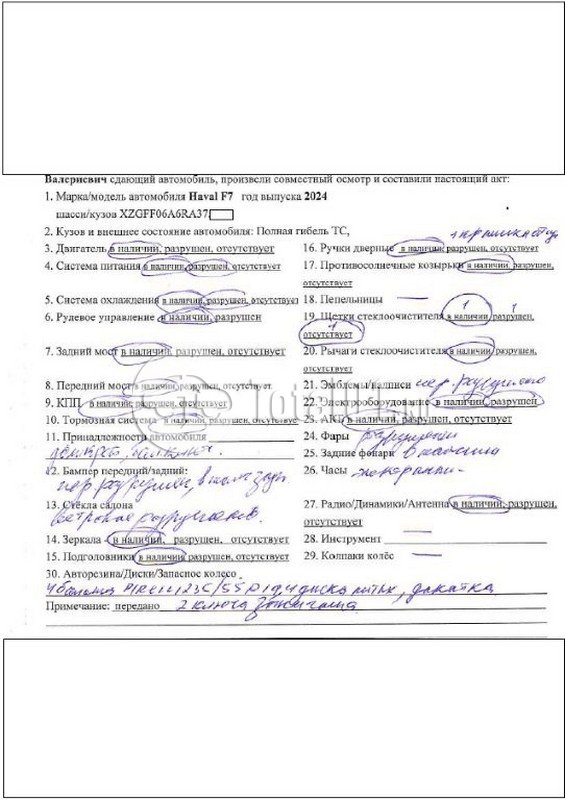 Валериевич сдающий автомобиль, произвели совместный осмотр и составили настоящий акт:
1. Марка/модель автомобиля Haval F7 год выпуска 2024
шасси/кузов XZGFF06A6RA37
2. Кузов и внешнее состояние автомобиля: Полная гибель ТС,
3. Двигатель в наличии, разрушен, отсутствует
4. Система питания в наличии, разрушен, отсутствует
5. Система охлаждения в наличии, разрушен, отсутствует
6. Рулевое управление в наличии, разрушен
7. Задний мост в наличии, разрушен, отсутствует
8. Передний мост в наличии, разрушен, отсутствует
9. КПП в наличии, разрушен, отсутствует
10. Тормозная система в наличии, разрушен, отсутствует
11. Принадлежности автомобиля
12. Бампер передний/задний:
пер разрушен, в нали зад
13. Стёкла салона
ветровое разрушено.
14. Зеркала - в наличии, разрушен, отсутствует
15. Подголовники в наличии, разрушен, отсутствует
16. Ручки дверные в наличии, разрушен, отсутствует
17. Противосолнечные козырьки в наличии, разрушен,
отсутствует
18. Пепельницы
19. Щетки стеклоочистителя в наличии, разрушен,
1 1
отсутствует
1
20. Рычаги стеклоочистителя в наличии, разрушен,
отсутствует
21. Эмблемы/надписи пер разрушено
22. Электрооборудование в наличии, разрушен
23. АКБ в наличии, разрушен, отсутствует
24. Фары разрушены
25. Задние фонари в наличии
26. Часы
27. Радио/Динамики/Антенна в наличии, разрушен,
отсутствует
28. Инструмент
29. Колпаки колёс
30. Авторезина/Диски/Запасное колесо
4 баллона 235/55 R19 4 диска литых, докатка
Примечание: передано 2 ключа зажигания